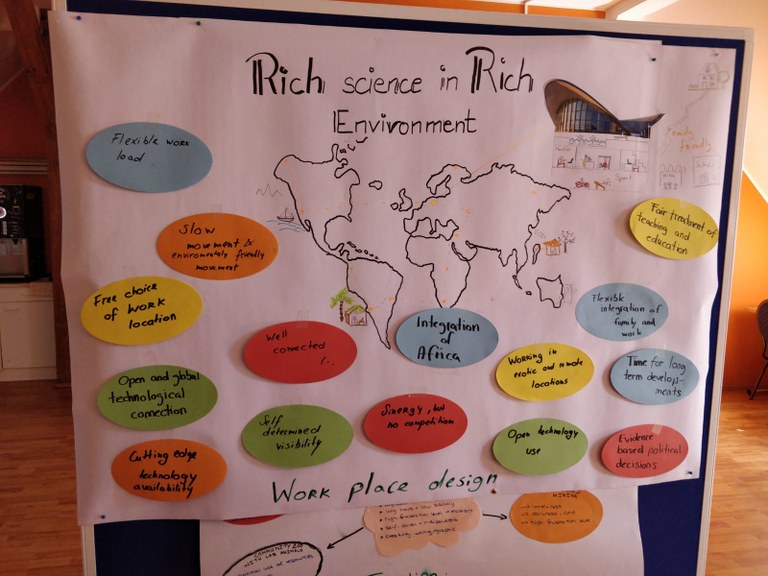 Rich science in Rich
Environment
Flexible work
load
family
friendly
Slow
movement &
enviromentely friendly
movement
Fair treatment of
teaching and
education
Free choice
of work
location
Flexible
integration of
family and
work
Well
connected
Integration
of
Africa
Working in
exotic and remote
locations
Time for long
term develop-
ments
Open and global
technological
connection
Self
determined
visibility
Sinergy, but
no competition
Open technology
use
Evidence
based political
decisions
Cutting edge
technology
availability
Work place design
COMMUNITY
WITH LAB ANIMALS